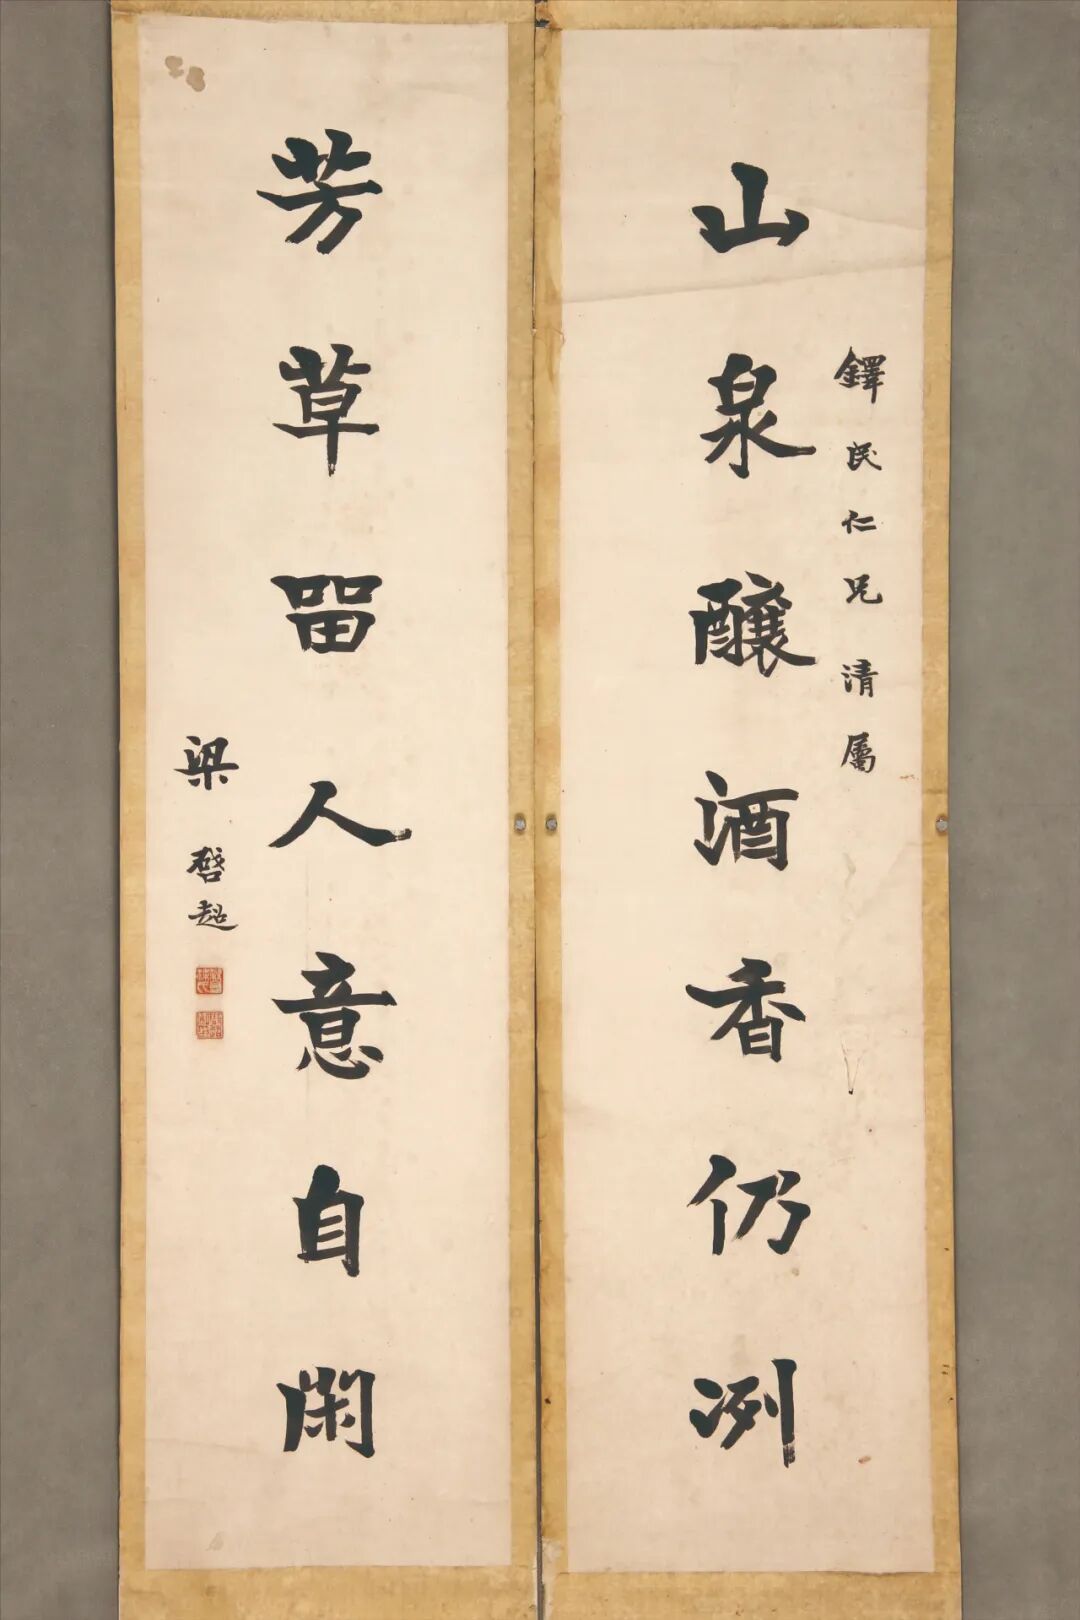 鐸民仁兄清屬
山泉釀酒香仍洌
芳草畱人意自閑
梁啓超